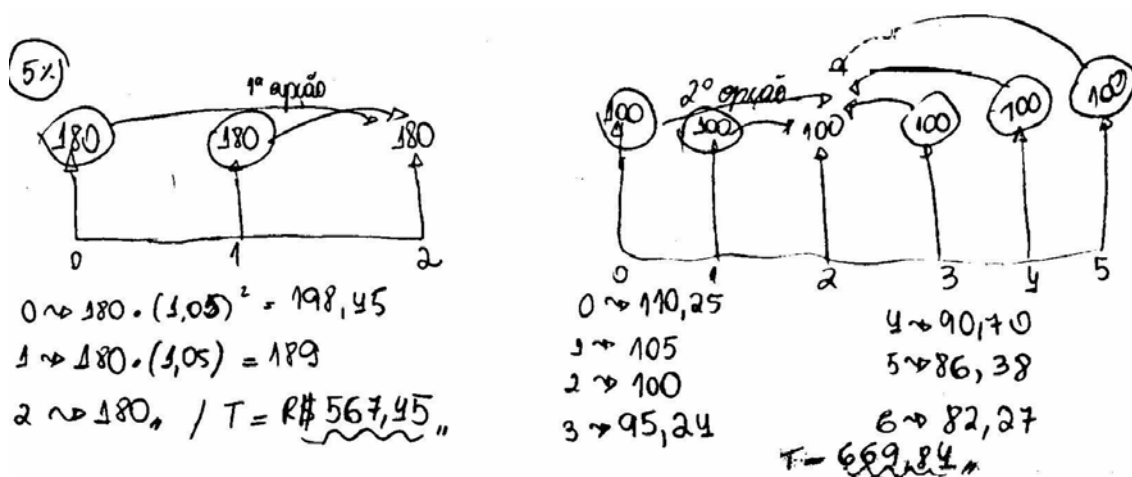 5%
1ª opção
180 180 180
0 1 2
0 → 180 . (1,05)² = 198,45
1 → 180 . (1,05) = 189
2 → 180,, / T = R$ 567,45,,
2º opção
100 100 100 100 100 100
0 1 2 3 4 5
0 → 110,25
1 → 105
2 → 100
3 → 95,24
4 → 90,70
5 → 86,38
6 → 82,27
T = 669,84,,